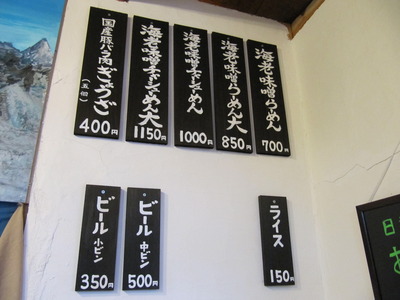 海老味噌らーめん
700円
海老味噌らーめん大
850円
海老味噌チャーシューめん
1000円
海老味噌チャーシューめん大
1150円
国産豚バラ肉ぎょうざ
(五個)
400円
ライス
150円
ビール
中ビン
500円
ビール
小ビン
350円